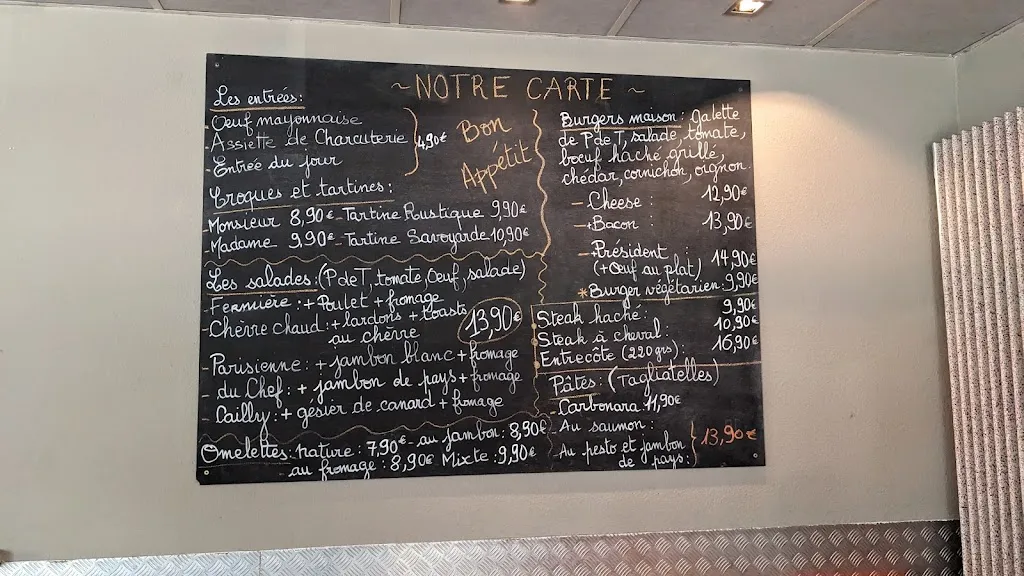 ~ NOTRE CARTE ~
Les entrées:
- Œuf mayonnaise
- Assiette de Charcuterie
- Entrée du jour
4,90€
Bon
Appétit
Croques et tartines:
Monsieur 8,90€ - Tartine Rustique 9,90€
Madame 9,90€ - Tartine Savoyarde 10,90€
Les salades: (P de T, tomate, Œuf, salade)
- Fermière: + Poulet + fromage
- Chèvre chaud: + lardons + toasts
au chèvre
13,90€
- Parisienne: + jambon blanc + fromage
- du Chef: + jambon de pays + fromage
- Cailly: + gesier de canard + fromage
Omelettes: nature: 7,90€ - au jambon: 8,90€
- au fromage: 8,90€ Mixte: 9,90€
Burgers maison: Galette
de P de T, salade, tomate,
bœuf haché grillé,
chédar, cornichon, oignon.
- Cheese: 12,90€
- + Bacon: 13,90€
- Président 14,90€
(+ Œuf au plat)
* Burger végétarien: 9,90€
Steak haché: 9,90€
Steak à cheval: 10,90€
Entrecôte (220 grs): 16,90€
Pâtes: (Tagliatelles)
- Carbonara: 11,90€
- Au saumon:
- Au pesto et jambon
de pays:
13,90€